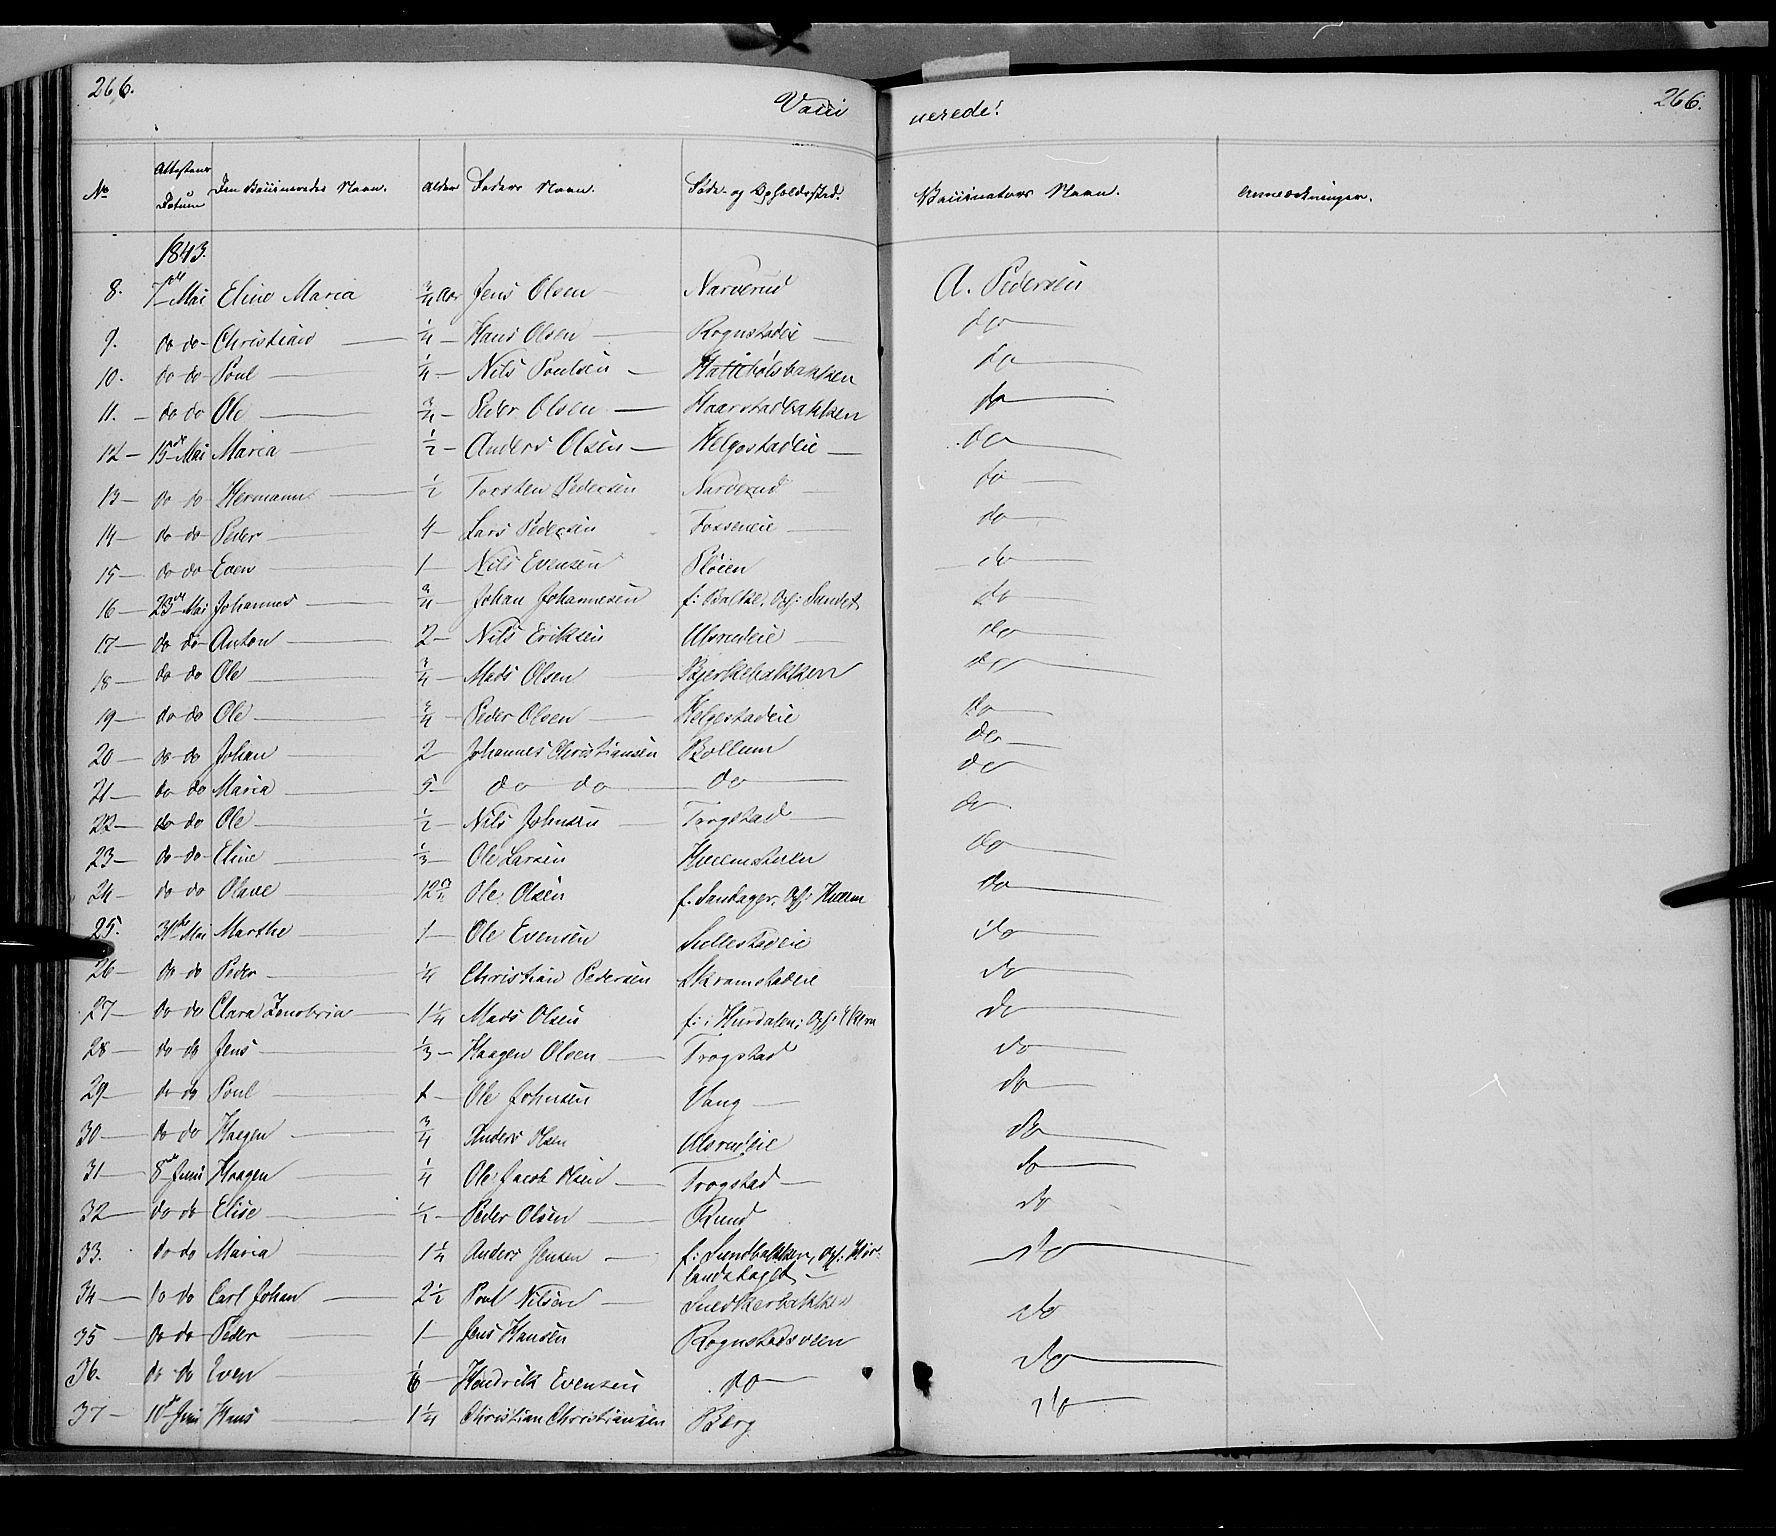 266. 266.
Vacci nerede!
No Attestens Datum Den Vaccineredes Navn. Alder Faders Navn. Føde- og Opholdssted. Vaccinators Navn. Anmærkninger.
1843.
8. 7de Mai Eline Maria 3/4 Aar Jens Olsen Narverud A. Pedersen
9. do do Christian 1/4 Hans Olsen Rognstadeie do
10. do do Poul 1/4 Nils Poulsen Hattebølsbakken do
11. do do Ole 3/4 Peder Olsen Haarstadbakken do
12 15de Mai Maria 1/2 Anders Olsen Helgestadeie do
13 do do Hermann 1/2 Torsten Pedersen Narverud do
14 do do Peder 4 Lars Pedersen Fosseneie do
15 do do Even 1 Nils Evensen Pløien do
16 23de Mai Johannes 3/4 Johan Johannesen f: Balke, Oph: Sundet do
17 do do Anton 2 Nils Eriksen Ulsrudeie do
18 do do Ole 3/4 Mads Olsen Bjerkebakken do
19 do do Ole 3/4 Peder Olsen Helgestadeie do
20 do do Johan 2 Johannes Christiansen Bollum do
21 do do Maria 5 do do do do
22 do do Ole 1/2 Nils Johnsen Trogstad do
23 do do Eline 1/3 Ole Larsen Hveemsteen do
24 do do Olave 12 1/2 Ole Olsen f: Sandager, Oph: Hveem do
25. 31de Mai Marthe 1 Ole Evensen Sullestadeie do
26 do do Peder 1/4 Christian Pedersen Skramstadeie do
27 do do Clara Zenobria 1 1/4 Mads Olsen f: i Hurdalen; Oph: Ekern do
28 do do Jens 1/3 Haagen Olsen Trogstad do
29 do do Poul 1 Ole Johnsen Vang do
30 do do Haagen 3/4 Anders Olsen Ulsrudeie do
31 8de Juni Haagen 1/4 Ole Jacob Olsen Trogstad do
32 do do Elise 1/2 Peder Olsen Ruud do
33. do do Maria 1 1/4 Anders Jensen f: Sundbakken, Oph: Hør- do
landshaget
34 do do Carl Johan 2 1/2 Poul Nilsen Snedkerbakken do
35 do do Peder 1 Jens Hansen Rognstadsveen
36. do do Even 1/6 Hendrik Evensen do do
37 10de Juni Hans 1 1/4 Christian Christiansen Berg do